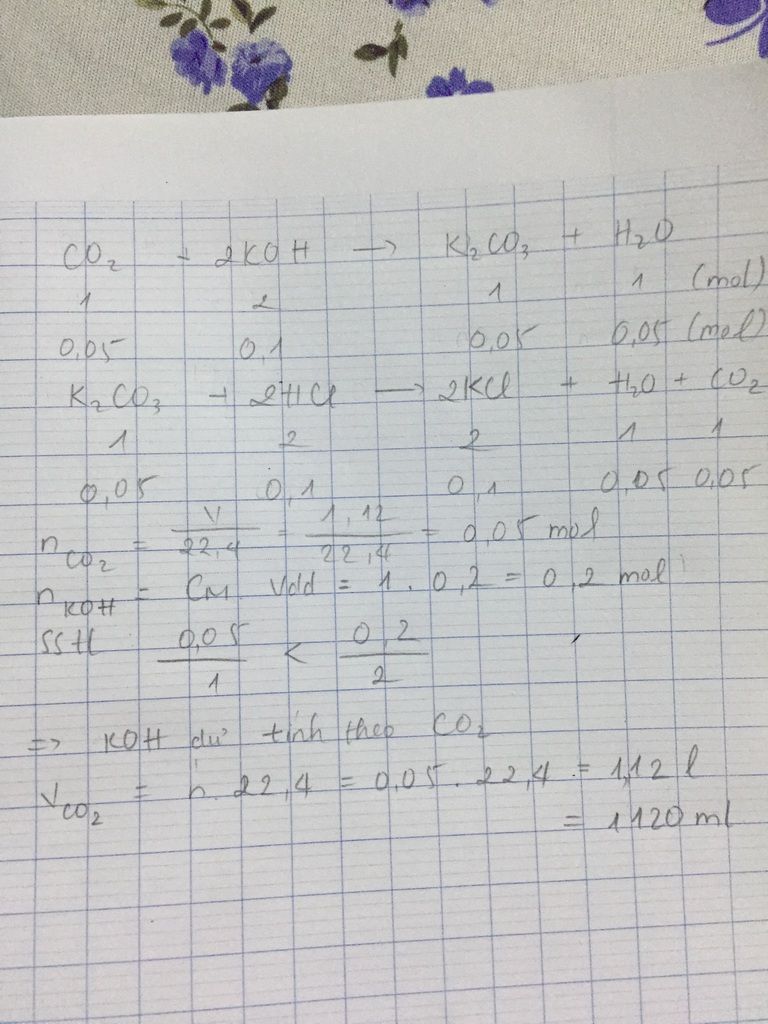 CO₂ + 2KOH → K₂CO₃ + H₂O
1 2 1 1 (mol)
0,05 0,1 0,05 0,05 (mol)
K₂CO₃ + 2HCl → 2KCl + H₂O + CO₂
1 2 2 1 1
0,05 0,1 0,1 0,05 0,05
n_CO₂ = V/22,4 = 1,12/22,4 = 0,05 mol
n_KOH = CM. Vdd = 1. 0,2 = 0,2 mol
SSTL 0,05/1 < 0,2/2
=> KOH dư tính theo CO₂
V_CO₂ = n. 22,4 = 0,05. 22,4 = 1,12 l
= 1120 ml